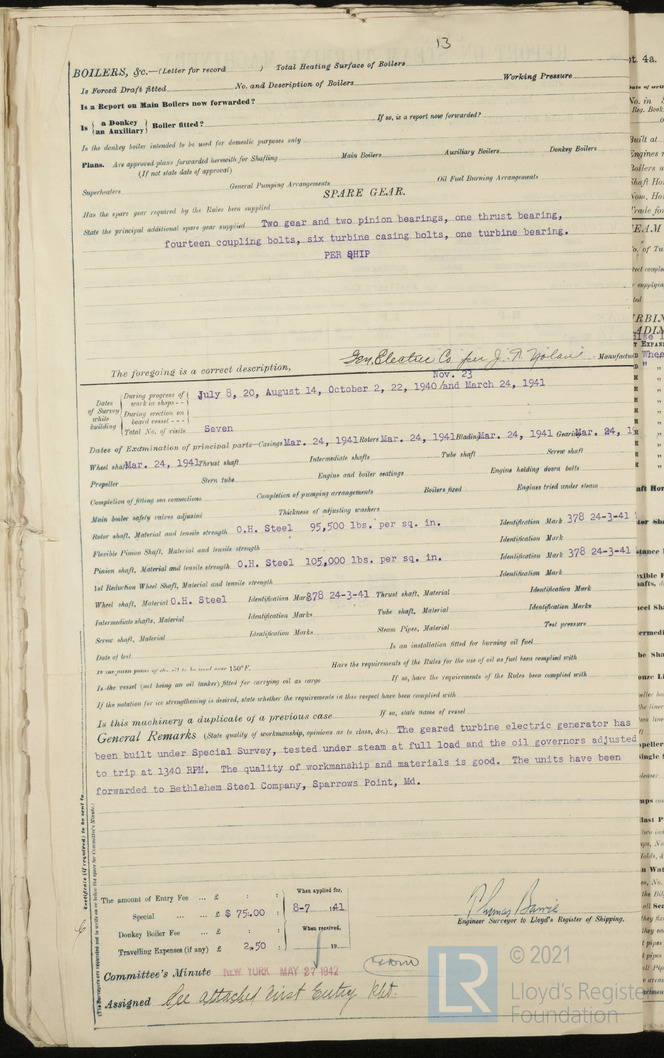 13
BOILERS, &c.—(Letter for record ) Total Heating Surface of Boilers
Is Forced Draft fitted No. and Description of Boilers Working Pressure
Is a Report on Main Boilers now forwarded?
Is { a Donkey / an Auxiliary } Boiler fitted? If so, is a report now forwarded?
Is the donkey boiler intended to be used for domestic purposes only
Plans. Are approved plans forwarded herewith for Shafting Main Boilers Auxiliary Boilers Donkey Boilers
(If not state date of approval)
Superheaters General Pumping Arrangements Oil Fuel Burning Arrangements
SPARE GEAR.
Has the spare gear required by the Rules been supplied
State the principal additional spare gear supplied Two gear and two pinion bearings, one thrust bearing,
fourteen coupling bolts, six turbine casing bolts, one turbine bearing.
PER SHIP
The foregoing is a correct description, Gen. Electric Co. per J. F. Nolan Manufactu
Nov. 23
Dates of Survey while building
During progress of work in shops -- July 8, 20, August 14, October 2, 22, 1940/and March 24, 1941
During erection on board vessel ---
Total No. of visits Seven
Dates of Examination of principal parts—Casings Mar. 24, 1941 Rotors Mar. 24, 1941 Blading Mar. 24, 1941 Gearing Mar. 24, 1
Wheel shaft Mar. 24, 1941 Thrust shaft Intermediate shafts Tube shaft Screw shaft
Propeller Stern tube Engine and boiler seatings Engine holding down bolts
Completion of fitting sea connections Completion of pumping arrangements Boilers fixed Engines tried under steam
Main boiler safety valves adjusted Thickness of adjusting washers
Rotor shaft, Material and tensile strength O.H. Steel 95,500 lbs. per sq. in. Identification Mark 378 24-3-41
Flexible Pinion Shaft, Material and tensile strength Identification Mark
Pinion shaft, Material and tensile strength O.H. Steel 105,000 lbs. per sq. in. Identification Mark 378 24-3-41
1st Reduction Wheel Shaft, Material and tensile strength Identification Mark
Wheel shaft, Material O.H. Steel Identification Mark 378 24-3-41 Thrust shaft, Material Identification Mark
Intermediate shafts, Material Identification Marks Tube shaft, Material Identification Marks
Screw shaft, Material Identification Marks Steam Pipes, Material Test pressure
Date of test Is an installation fitted for burning oil fuel
Is the flash point of the oil to be used over 150°F. Have the requirements of the Rules for the use of oil as fuel been complied with
Is the vessel (not being an oil tanker) fitted for carrying oil as cargo If so, have the requirements of the Rules been complied with
If the notation for ice strengthening is desired, state whether the requirements in this respect have been complied with
Is this machinery a duplicate of a previous case If so, state name of vessel
General Remarks (State quality of workmanship, opinions as to class, &c.) The geared turbine electric generator has
been built under Special Survey, tested under steam at full load and the oil governors adjusted
to trip at 1340 RPM. The quality of workmanship and materials is good. The units have been
forwarded to Bethlehem Steel Company, Sparrows Point, Md.
Certificate (if required) to be sent to
The amount of Entry Fee ... £ : : When applied for,
Special ... ... £ $ 75.00 8-7 1941
Donkey Boiler Fee ... £ : : When received,
Travelling Expenses (if any) £ 2.50 19
Engineer Surveyor to Lloyd's Register of Shipping.
Committee's Minute NEW YORK MAY 27 1942
Assigned See attached First Entry Rpt.
LR
© 2021
Lloyd's Register
Foundation